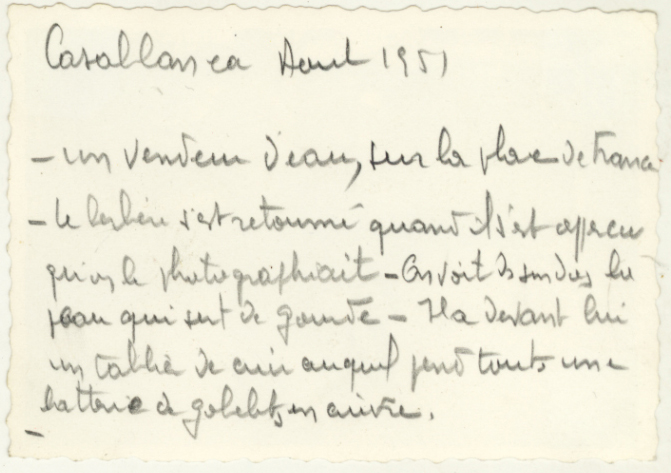 Casablanca Aout 1951
- un vendeur d'eau, sur la place de France
- Le berbère s'est retourné quand il s'est apperçu
qu'on le photographiait - On voit ds son dos la
peau qui sert de gourde - Il a devant lui
un tablier de cuir auquel pend toute une
batterie de gobelets en cuivre.